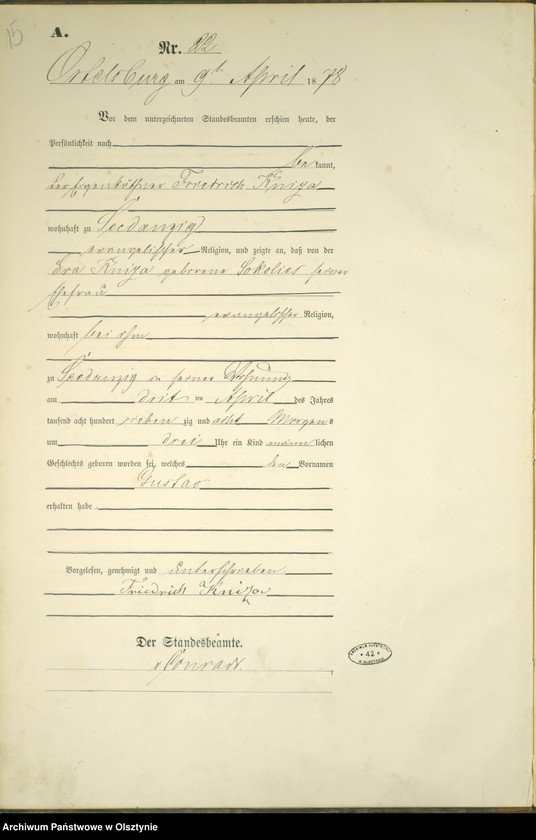 15
A.
Nr. 22
Ortelsburg am 9t April 1878
Vor dem unterzeichneten Standesbeamten erschien heute, der
Persönlichkeit nach
be kannt,
der Eigenkäthner Friedrich Kniza
wohnhaft zu Seedanzig
evangelischer Religion, und zeigte an, daß von der
Eva Kniza geborene Sokolies seiner
Ehefrau
evangelischer Religion,
wohnhaft bei ihm
zu Seedanzig in seiner Wohnung
am drit ten April des Jahres
tausend acht hundert sieben zig und acht Morgens
um drei Uhr ein Kind männ lichen
Geschlechts geboren worden sei, welches den Vornamen
Gustav
erhalten habe.
Vorgelesen, genehmigt und unterschrieben
Friedrich Kniza
Der Standesbeamte.
Conrad.
42
Archiwum Państwowe w Olsztynie